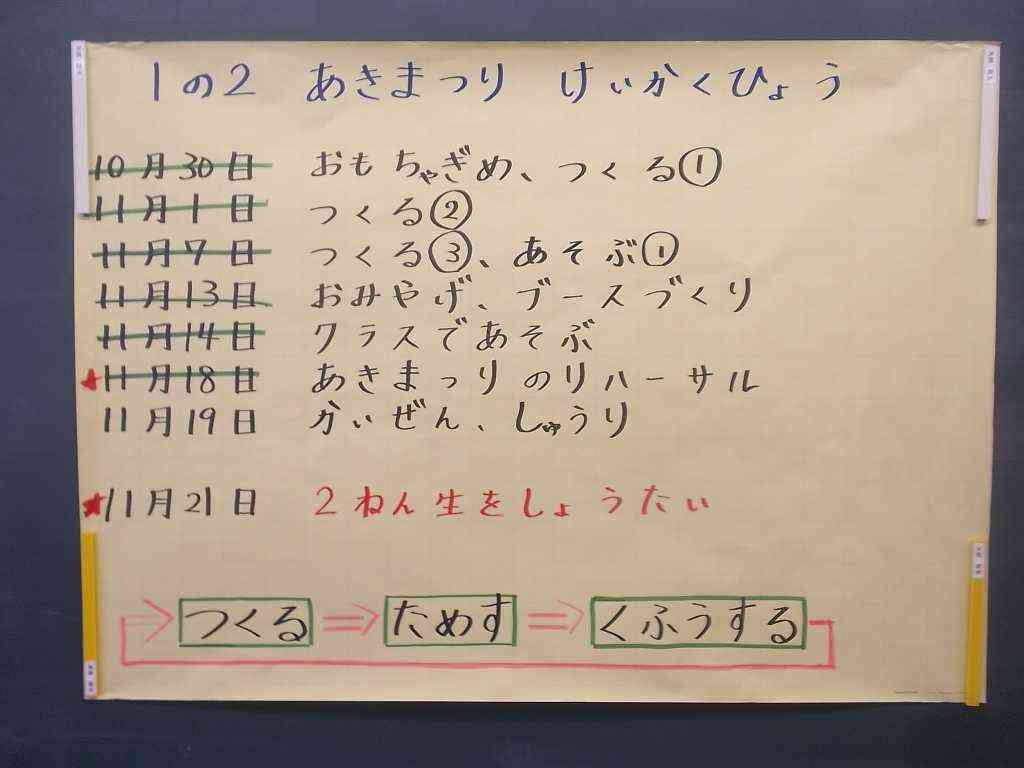 1の2 あきまつり けいかくひょう
10月30日 おもちゃぎめ、つくる①
11月1日 つくる②
11月7日 つくる③、あそぶ①
11月13日 おみやげ、ブースづくり
11月14日 クラスであそぶ
★11月18日 あきまつりのリハーサル
11月19日 かいぜん、しゅうり
★11月21日 2ねん生をしょうたい
つくる⇒ためす⇒くふうする